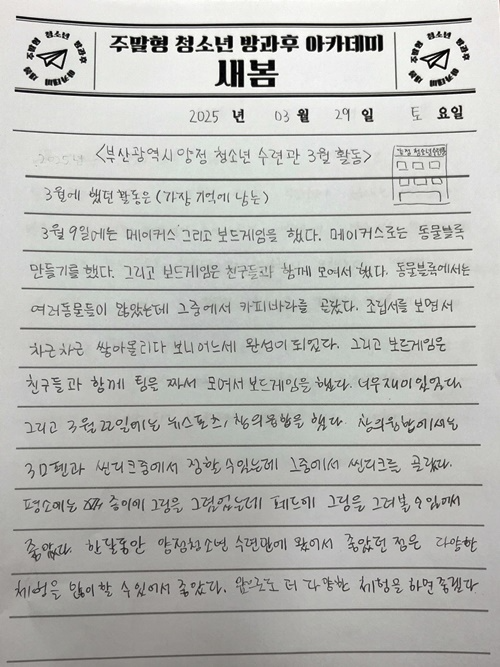 주말형 청소년 방과후 아카데미
새봄
2025 년 03 월 29 일 토 요일
<부산광역시 양정 청소년 수련관 3월 활동>
3월에 했던 활동은 (가장 기억에 남는)
3월 9일에는 메이커스 그리고 보드게임을 했다. 메이커스로는 동물블록
만들기를 했다. 그리고 보드게임은 친구들과 함께 모여서 했다. 동물블록에서는
여러동물들이 많았는데 그중에서 카피바라를 골랐다. 조립서를 보면서
차근차근 쌓아올리다 보니어느세 완성이 되있다. 그리고 보드게임은
친구들과 함께 팀을 짜서 모여서 보드게임을 했다. 너무재미있었다.
그리고 3월 22일에는 뉴스포츠, 창의융합을 했다. 창의융합에서는
3D펜과 씬디크중에서 정할수있는데 그중에서 씬디크를 골랐다.
평소에는 종이에 그림을 그렸었는데 패드에 그림을 그려볼 수 있어서
좋았다. 한달동안 양정청소년 수련관에 왔어서 좋았던 점은 다양한
체험을 많이 할 수있어서 좋았다. 앞으로도 더 다양한 체험을 하면 좋겠다